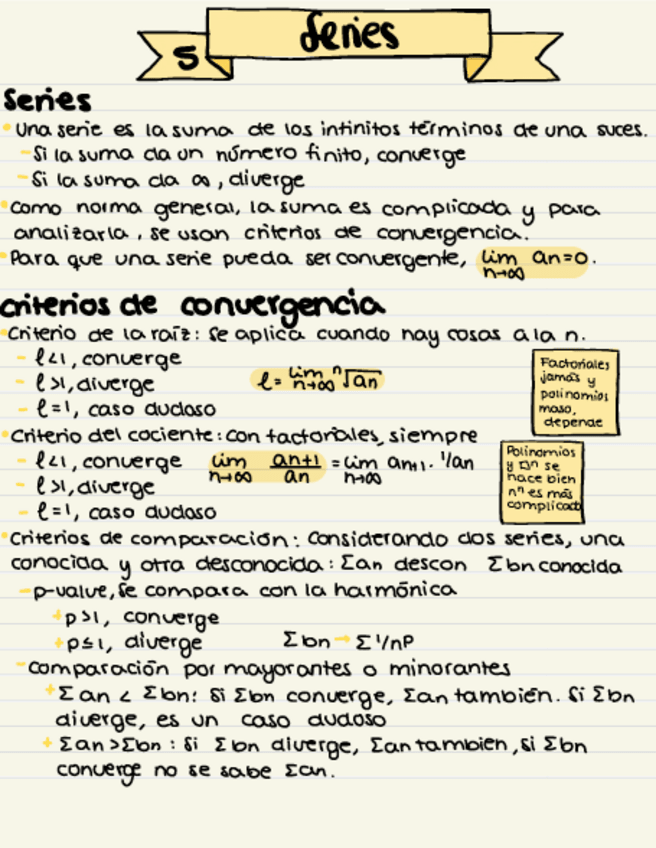 5 Series
Series
• Una serie es la suma de los infinitos términos de una suces.
- Si la suma da un número finito, converge
- Si la suma da ∞, diverge
• Como norma general, la suma es complicada y para
analizarla, se usan criterios de convergencia.
• Para que una serie pueda ser convergente, lim n→∞ an=0.
Criterios de convergencia
• Criterio de la raíz: Se aplica cuando hay cosas a la n.
- ℓ<1, converge
- ℓ>1, diverge ℓ = lim n→∞ ⁿ√an
- ℓ=1, caso dudoso
Factoriales
jamás y
polinomios
maso,
depende
• Criterio del cociente: con factoriales, siempre
- ℓ<1, converge lim n→∞ an+1/an = lim n→∞ an+1 · 1/an
- ℓ>1, diverge
- ℓ=1, caso dudoso
Polinomios
y se
hace bien
nⁿ es más
complicado
• Criterios de comparación: Considerando dos series, una
conocida y otra desconocida: Σan descon Σbn conocida
- p-value, se compara con la harmónica
+ p>1, converge
+ p≤1, diverge Σbn → Σ1/nᵖ
- Comparación por mayorantes o minorantes
+ Σan < Σbn: Si Σbn converge, Σan también. Si Σbn
diverge, es un caso dudoso
+ Σan>Σbn: Si Σbn diverge, Σan tambien, si Σbn
converge no se sabe Σan.